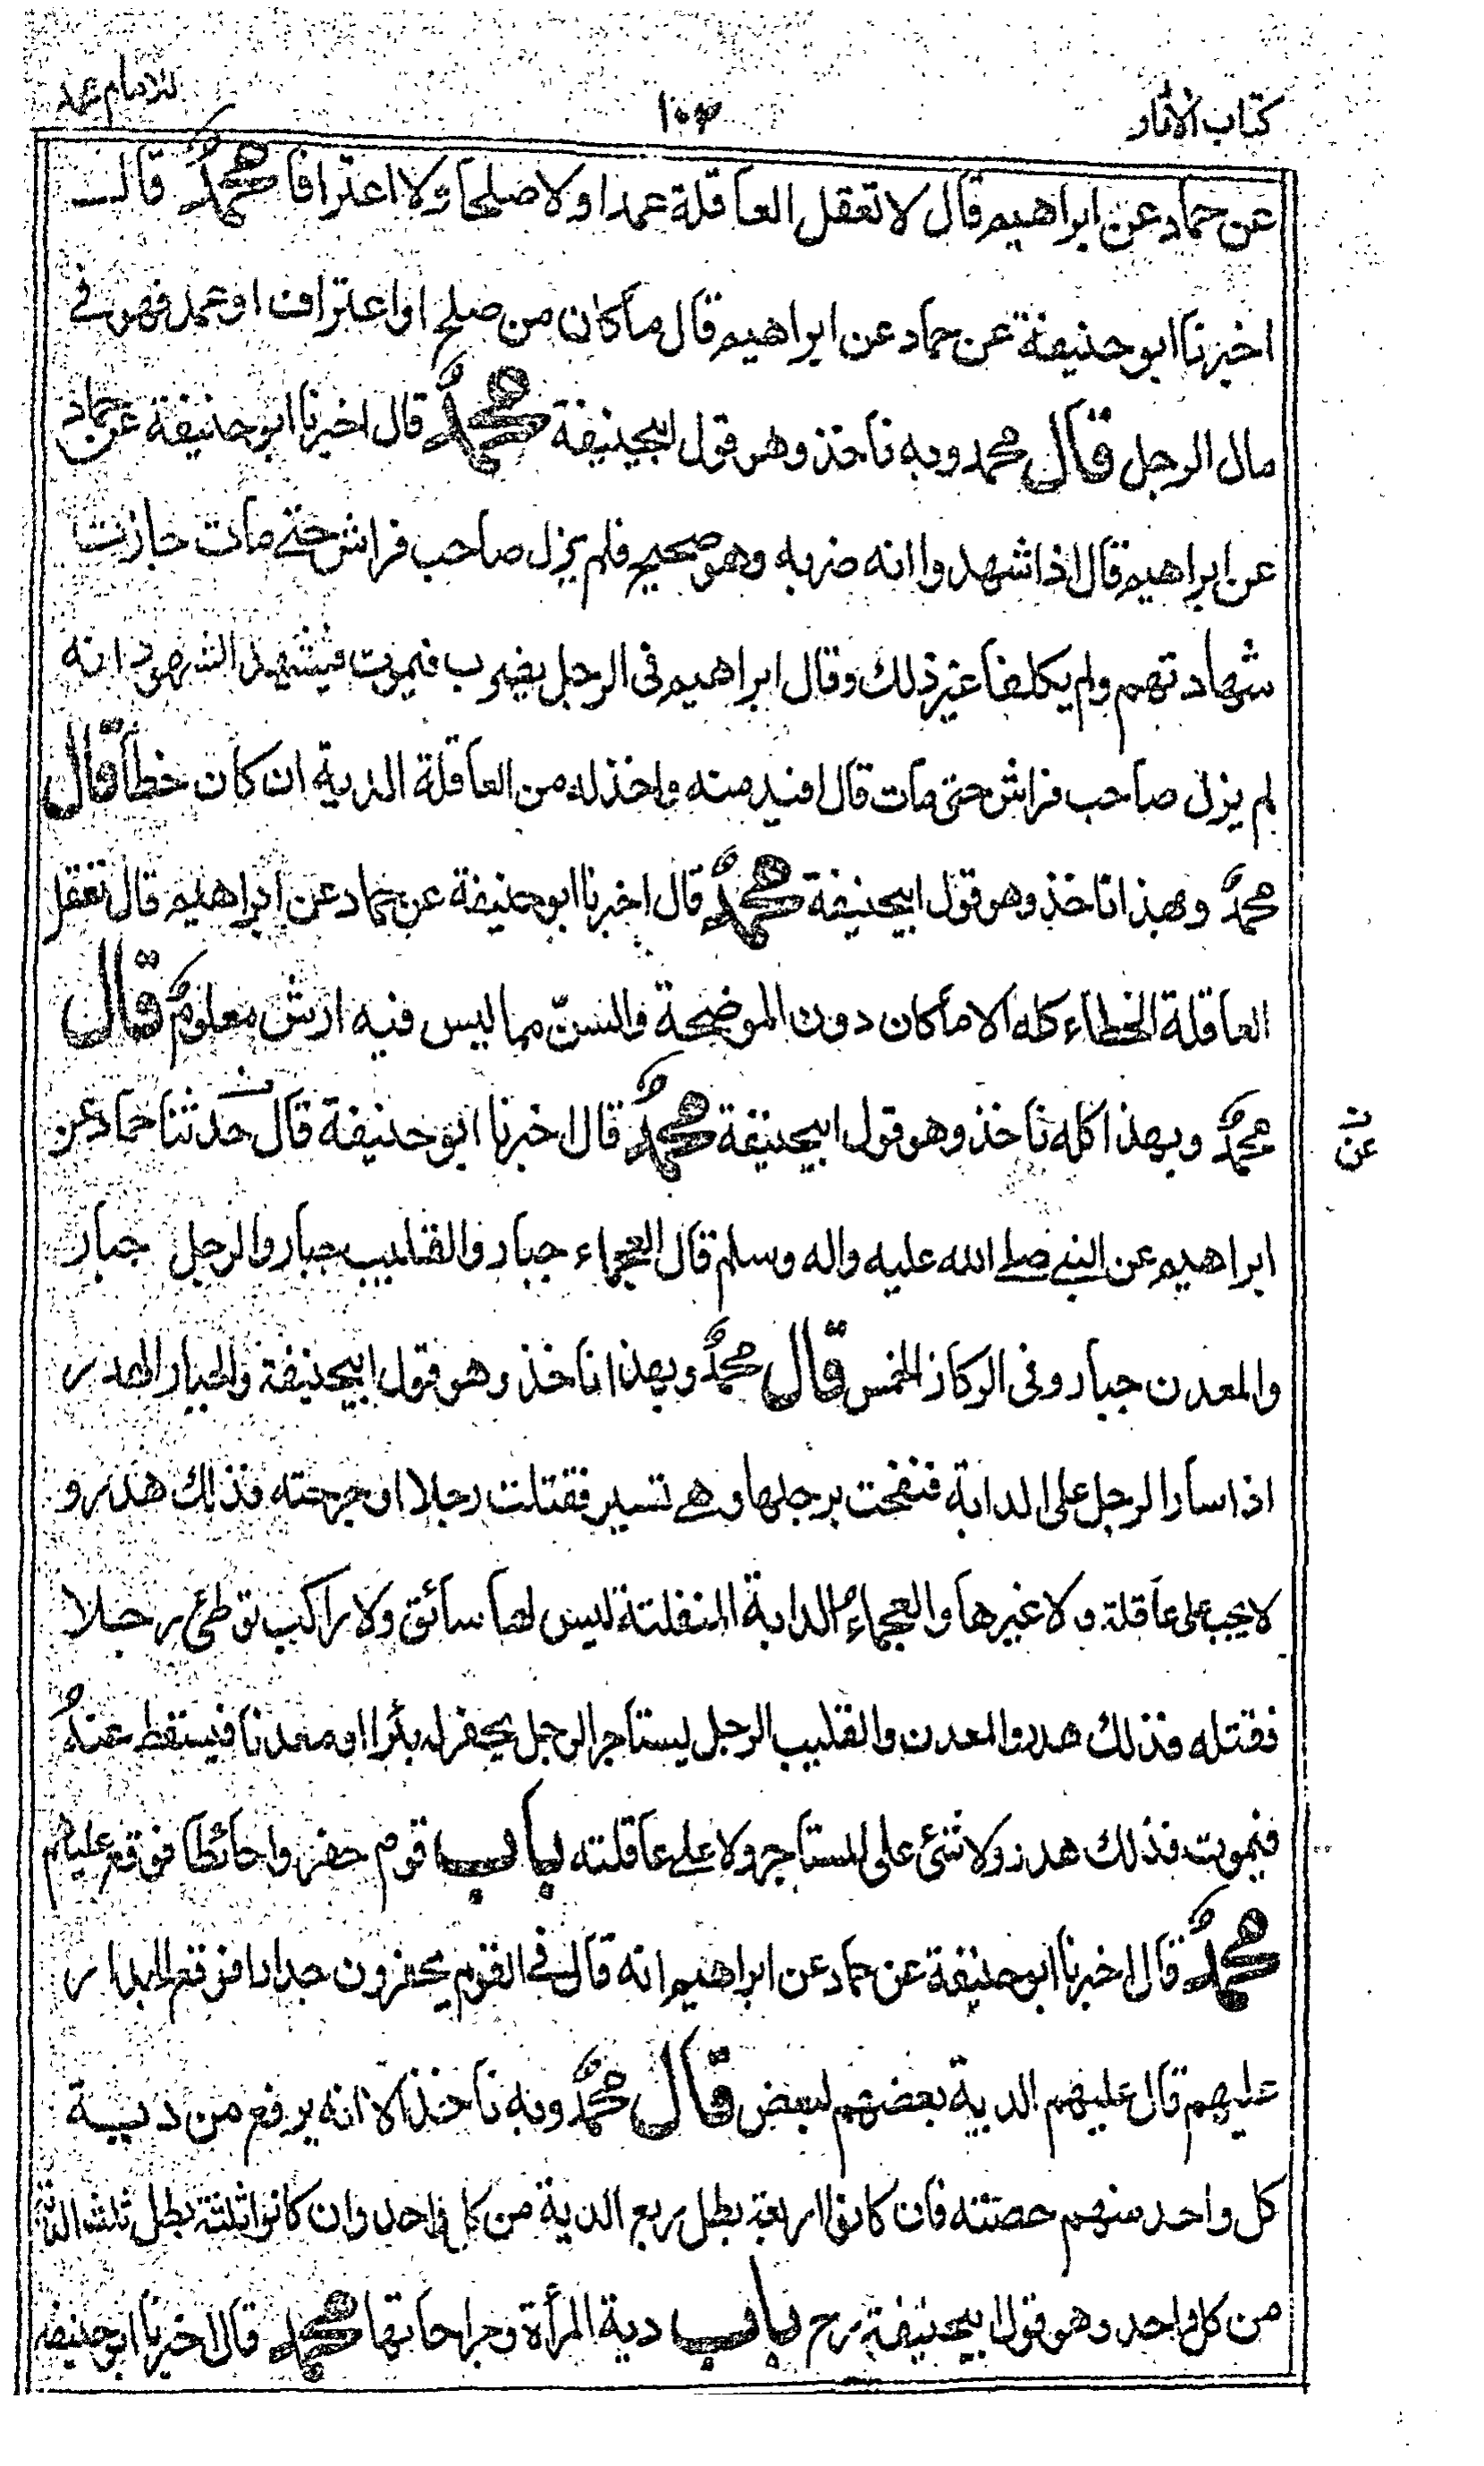 كتاب الآثار
١٠٣
للامام محمد
عن حماد عن ابراهيم قال لا تعقل العاقلة عمدا ولا صلحا ولا اعترافا محمد قال
اخبرنا ابو حنيفة عن حماد عن ابراهيم قال ما كان من صلح او اعتراف او عمد فهو في
مال الرجل قال محمد وبه ناخذ وهو قول ابيحنيفة محمد قال اخبرنا ابو حنيفة عن حماد
عن ابراهيم قال اذا شهدوا انه ضربه وهو صحيح فلم يزل صاحب فراش حتى مات جازت
شهادتهم ولم يكلفا غير ذلك وقال ابراهيم فى الرجل يضرب فيموت فيشهد الشهود انه
لم يزل صاحب فراش حتى مات قال اقيد منه واخذ له من العاقلة الدية ان كان خطأ قال
محمد وبهذا ناخذ وهو قول ابيحنيفة محمد قال اخبرنا ابو حنيفة عن حماد عن ابراهيم قال تعقل
العاقلة الخطاء كله الا ما كان دون الموضحة والسن مما ليس فيه ارش معلوم قال
محمد وبهذا كله ناخذ وهو قول ابيحنيفة محمد قال اخبرنا ابو حنيفة قال حدثنا حماد عن
ن
عن
ابراهيم عن النبي صلى الله عليه واله وسلم قال العجماء جبار والقليب جبار والرجل جبار
والمعدن جبار وفى الركاز الخمس قال محمد وبهذا ناخذ وهو قول ابيحنيفة والجبار الهدر
اذا سار الرجل على الدابة فنفحت برجلها وهي تسير فقتلت رجلا او جرحته فذلك هدر و
لا يجب على عاقلة ولا غيرها والعجماء الدابة المنفلتة ليس لها سائق ولا راكب توطئ رجلا
فقتله فذلك هدر والمعدن والقليب الرجل يستاجر الرجل يحفر له بئرا او معدنا فيسقط عنه
فيموت فذلك هدر ولا شئ على المستاجر ولا على عاقلته باب قوم حفروا حائطا فوقع عليهم
محمد قال اخبرنا ابو حنيفة عن حماد عن ابراهيم انه قال في القوم يحفرون جدارا فوقع الجدار
عليهم قال عليهم الدية بعضهم لبعض قال محمد وبه ناخذ الا انه يرفع من دية
كل واحد منهم حصته فان كانوا اربعة بطل ربع الدية من كل واحد وان كانوا ثلثة بطل ثلث
من كل واحد وهو قول ابيحنيفة رح باب دية المرأة وجراحاتها محمد قال اخبرنا ابو حنيفة